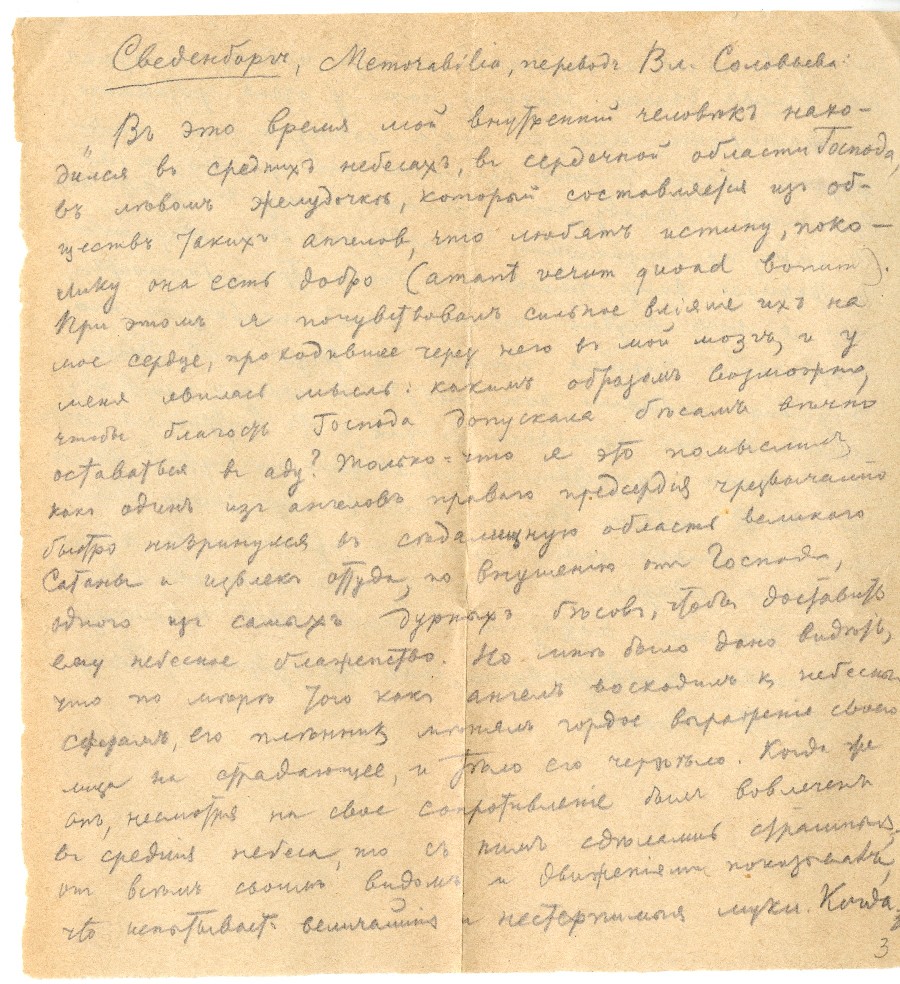 Сведенборгъ, Memorabilia, переводъ Вл. Соловьева:
„Въ это время мой внутренній человѣкъ нахо-
дился въ среднихъ небесахъ, въ сердечной области Господа,
въ лѣвомъ желудочкѣ, который составляется изъ об-
ществъ такихъ ангелов, что любятъ истину, поко-
лику она есть добро (amant verum quoad bonum).
При этомъ я почувствовалъ сильное вліяніе ихъ на
мое сердце, проходившее черезъ него въ мой мозгъ, и у
меня явилась мысль: какимъ образомъ возможно,
чтобы благость Господа допускала бѣсамъ вѣчно
оставаться въ аду? Только-что я это помыслилъ,
какъ одинъ изъ ангеловъ праваго предсердія чрезвычайно
быстро низринулся въ сѣдалищную область великаго
Сатаны и извлекъ оттуда, по внушенію отъ Господа,
одного изъ самыхъ дурныхъ бѣсовъ, чтобы доставить
ему небесное блаженство. Но мнѣ было дано видѣть,
что по мѣрѣ того какъ ангелъ восходилъ къ небеснымъ
сферамъ, его плѣнникъ мѣнялъ гордое выраженіе своего
лица на страдающее, и тѣло его чернѣло. Когда же
онъ, несмотря на свое сопротивленіе былъ вовлеченъ
въ среднія небеса, то съ нимъ сдѣлались страшныя
онъ всѣмъ своимъ видомъ и движеніями показывалъ,
что испытываетъ величайшія и нестерпимыя муки. Когда
3